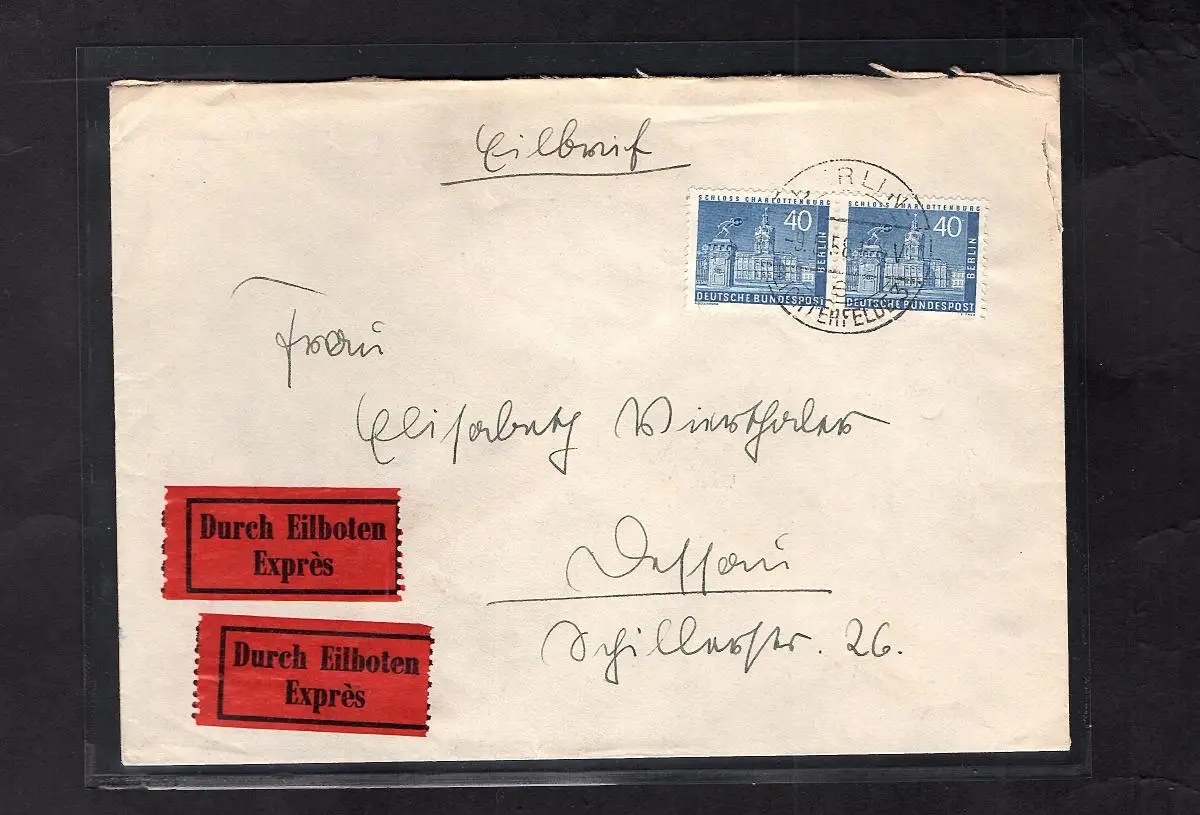 Eilbrief
BERLIN
LICHTERFELDE
SCHLOSS CHARLOTTENBURG
40
BERLIN
DEUTSCHE BUNDESPOST
SCHLOSS CHARLOTTENBURG
40
BERLIN
DEUTSCHE BUNDESPOST
Frau
Elisabeth Vierthaler
Durch Eilboten
Exprès
Dessau
Schillerstr. 26.
Durch Eilboten
Exprès